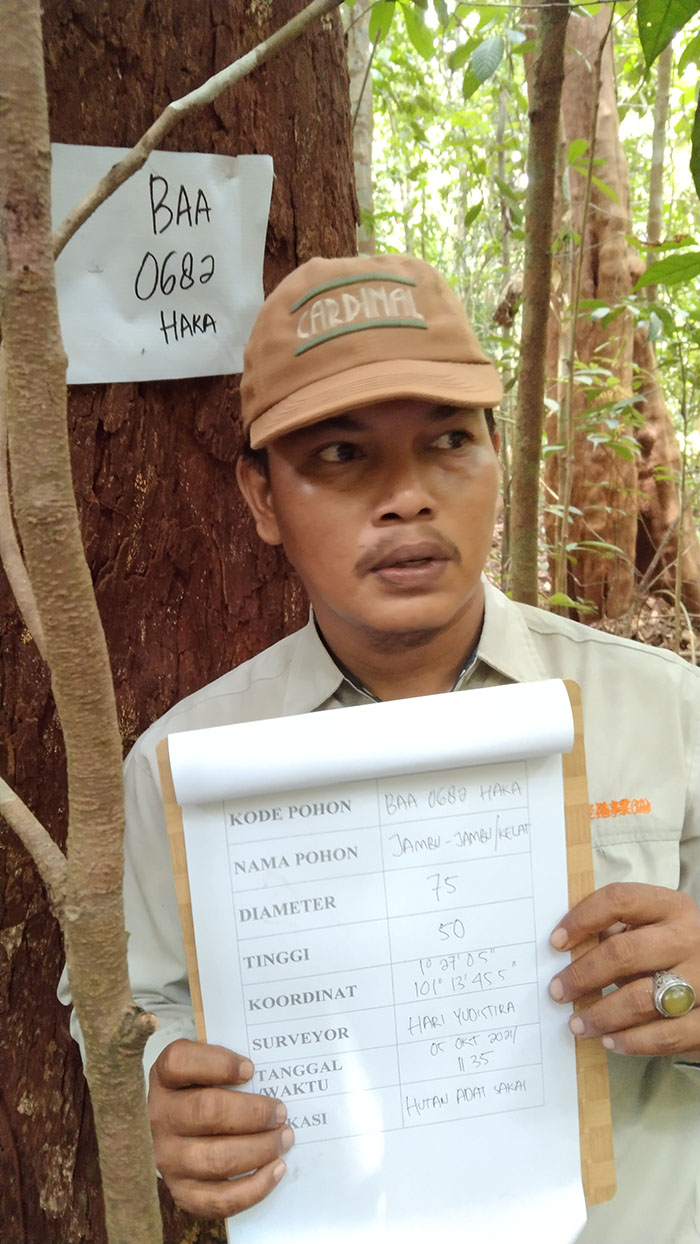 BAA
0682
HAKA
CARDINAL
KODE POHON BAA 0682 HAKA
NAMA POHON JAMBU-JAMBU/KELAT
DIAMETER 75
TINGGI 50
KOORDINAT 1° 27' 05"
101° 13' 455"
SURVEYOR HARI YUDISTIRA
TANGGAL 05 OKT 2021/
/WAKTU 1135
KASI HUTAN ADAT SAKAI